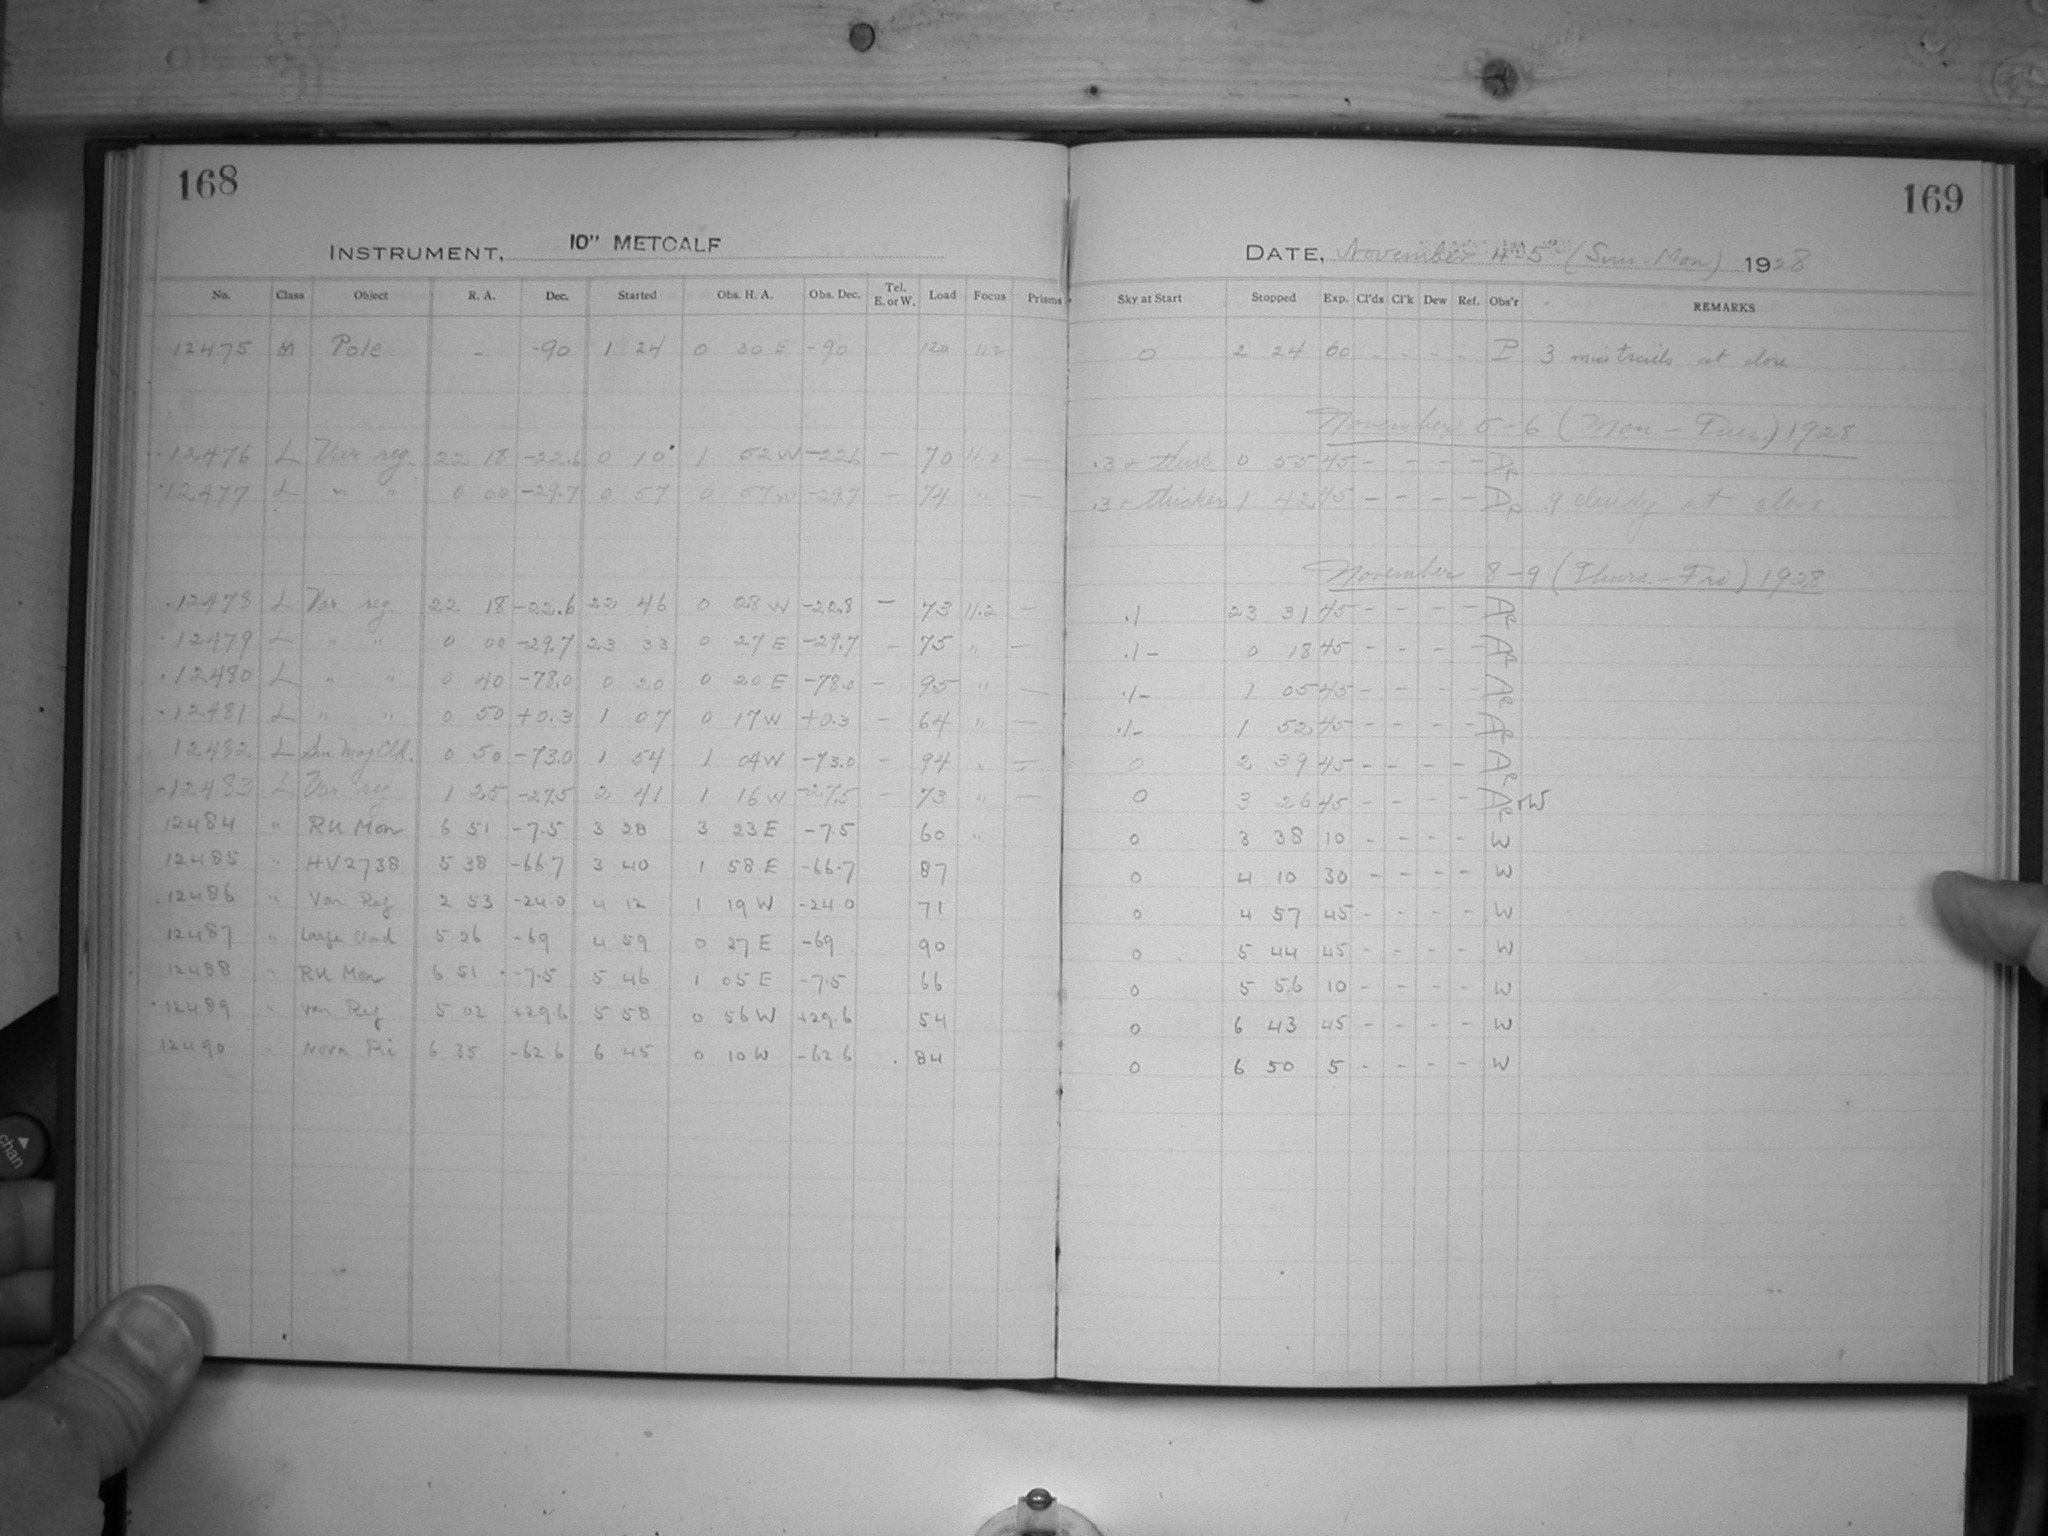 168
169
INSTRUMENT, 10" METCALF
DATE, November 4-5 (Sun-Mon) 1928
No. Class Object R. A. Dec. Started Obs. H. A. Obs. Dec. Tel. E. or W. Load Focus Prisms Sky at Start Stopped Exp. Cl'ds Cl'k Dew Ref. Obs'r REMARKS
12475 M Pole - -90 1 24 0 30 E -90 120 11.2 0 2 24 60 - - - - P 3 min trails at close
November 5-6 (Mon-Tues.) 1928
12476 L Var reg. 22 18 -22.6 0 10 1 52 W -22.6 - 70 11.2 - .3 + 0 55 45 - - - -
12477 L " " 0 00 -29.7 0 57 0 57 W -29.7 - 74 " - .3 + thicker 1 42 45 - - - - .9 cloudy at close
November 8-9 (Thurs-Fri) 1928
12478 L Var reg. 22 18 -22.6 22 46 0 28 W -22.8 - 73 11.2 - .1 23 31 45 - - - -
12479 L " " 0 00 -29.7 23 33 0 27 E -29.7 - 75 " - .1- 0 18 45 - - - -
12480 L " " 0 40 -78.0 0 20 0 20 E -78.0 - 95 " - .1- 1 05 45 - - - -
12481 L " " 0 50 +0.3 1 07 0 17 W +0.3 - 64 " - .1- 1 52 45 - - - -
12482 L Sm. Mag Cld. 0 50 -73.0 1 54 1 04 W -73.0 - 94 " - 0 2 39 45 - - - -
12483 L Var reg 1 25 -27.5 2 41 1 16 W -27.5 - 73 " - 0 3 26 45 - - - - +W
12484 " RU Mon 6 51 -7.5 3 28 3 23 E -7.5 60 " 0 3 38 10 - - - - W
12485 " HV2738 5 38 -66.7 3 40 1 58 E -66.7 87 0 4 10 30 - - - - W
12486 " Var Reg 2 53 -24.0 4 12 1 19 W -24.0 71 0 4 57 45 - - - - W
12487 " Large Cloud 5 26 -69 4 59 0 27 E -69 90 0 5 44 45 - - - - W
12488 " RU Mon 6 51 -7.5 5 46 1 05 E -7.5 66 0 5 56 10 - - - - W
12489 " Var Reg 5 02 +29.6 5 58 0 56 W +29.6 54 0 6 43 45 - - - - W
12490 " Nova Pic 6 35 -62.6 6 45 0 10 W -62.6 84 0 6 50 5 - - - - W
chan